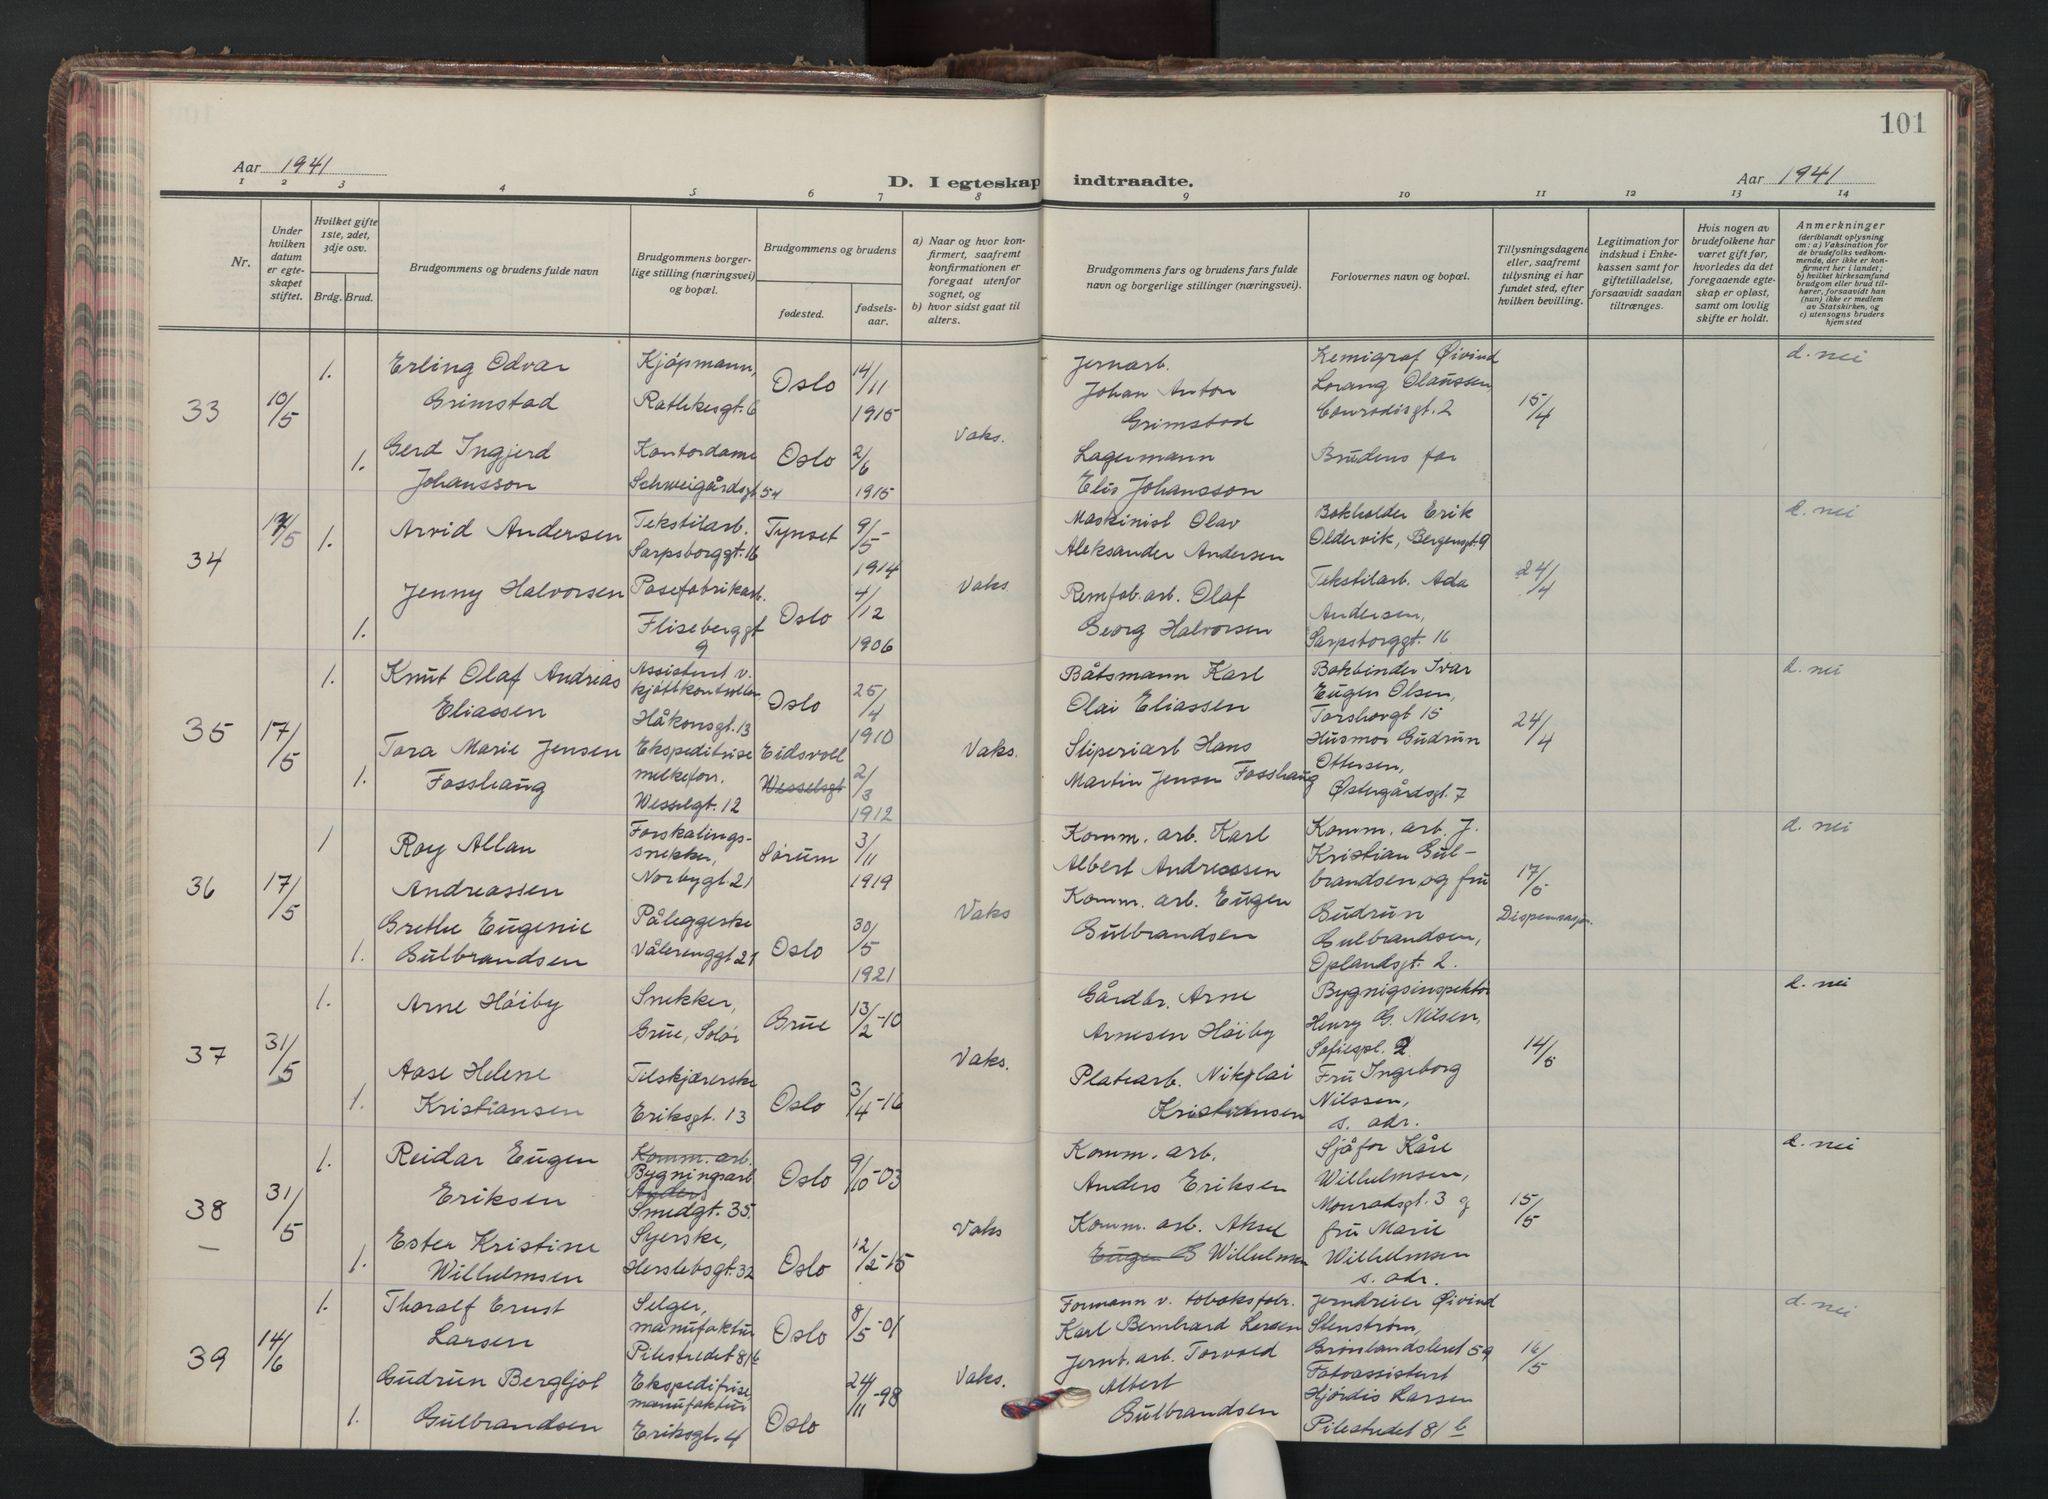 101
Aar 1941
D. I egteskap indtraadte.
Aar 1941
1 2 3 4 5 6 7 8 9 10 11 12 13 14
Nr.
Under hvilken datum er egteskapet stiftet.
Hvilket gifte 1ste, 2det, 3dje osv.
Brdg. Brud.
Brudgommens og brudens fulde navn
Brudgommens borgerlige stilling (næringsvei) og bopæl.
Brudgommens og brudens
fødested.
fødselsaar.
a) Naar og hvor konfirmert, saafremt konfirmationen er foregaat utenfor sognet, og
b) hvor sidst gaat til alters.
Brudgommens fars og brudens fars fulde navn og borgerlige stillinger (næringsvei).
Forlovernes navn og bopæl.
Tillysningsdagene eller, saafremt tilysning ei har fundet sted, efter hvilken bevilling.
Legitimation for indskud i Enkekassen samt for giftetilladelse, forsaavidt saadan tiltrænges.
Hvis nogen av brudefolkene har været gift før, hvorledes da det foregaaende egteskap er opløst, samt om lovlig skifte er holdt.
Anmerkninger
(deriblandt oplysning om: a) Vaksination for de brudefolks vedkommende, der ikke er konfirmert her i landet; b) hvilket kirkesamfund brudgom eller brud tilhører, forsaavidt han (nun) ikke er medlem av Statskirken, og c) utensogns bruders hjemsted
33
10/5
1.
Erling Odvar
Grimstad
Kjøpmann,
Rathkesgt. 6
Oslo
14/11
1915
1.
Gerd Ingjerd
Johansson
Kontordame
Schweigårdsgt 54
Oslo
2/6
1915
Vaks.
Jernarb.
Johan Anton
Grimstad
Lagermann
Elis Johansson
Kemigraf Øivind
Lorang Olaussen,
Conradisgt. 2
Brudens far
15/4
d. nei
34
17/5
1.
Arvid Andersen
Tekstilarb.
Sarpsborggt. 16
Tynset
9/5
1914
1.
Jenny Halvorsen
Posefabrikarb.
Fliseberggt
9
Oslo
4/12
1906
Vaks
Maskinist Olav
Aleksander Andersen
Remfab. arb. Olaf
Georg Halvorsen
Bokholder Erik
Oldervik, Bergensgt. 9
Tekstilarb. Ada
Andersen,
Sarpsborggt. 16
24/4
d. nei
35
17/5
1.
Knut Olaf Andreas
Eliassen
Assistent v.
kjøttkontrollen
Håkonsgt. 13
Oslo
25/4
1910
1.
Tora Marie Jensen
Fosshaug
Ekspeditrise
melkeforr.
Wesselgt. 12
Eidsvoll
Wesselsgt
2/3
1912
Vaks.
Båtsmann Karl
Olai Eliassen
Sliperiarb Hans
Martin Jensen Fosshaug
Bokbinder Ivar
Eugen Olsen,
Torshovgt 15
Husmor Gudrun
Ottersen,
Østergårdsgt. 7
24/4
d. nei
36
17/5
1
Roy Allan
Andreassen
Forskalings-
snekker,
Norbygt. 21
Sørum
3/11
1919
1.
Grethe Eugenie
Gulbrandsen
Påleggerske
Vålerenggt 21
Oslo
30/5
1921
Vaks
Komm. arb. Karl
Albert Andreassen
Komm. arb. Eugen
Gulbrandsen
Komm. arb. J.
Kristian Gul-
brandsen og fru
Gudrun
Gulbrandsen,
Oplandsgt. 2.
17/5
Dispensasjon
d. nei
37
31/5
1.
Arne Høiby
Snekker,
Grue, Solør
Grue
13/2-10
1.
Aase Helene
Kristiansen
Tilskjærerske
Eriksgt. 13
Oslo
3/4-16
Vaks.
Gårdbr. Arne
Arnesen Høiby
Platearb. Nikolai
Kristiansen
Bygnigsinspektør
Henry G. Nilsen,
Sofiespl. 2
Fru Ingeborg
Nilssen,
s. adr.
14/5
d. nei
38
31/5
1.
Reidar Eugen
Eriksen
Komm. arb.
Bygningsarb
Anders
Smedgt. 35.
Oslo
9/10-03
1.
Ester Kristine
Wilhelmsen
Syerske,
Herslebsgt. 32
Oslo
12/2-15
Vaks
Komm. arb.
Anders Eriksen
Komm. arb. Aksel
Eugen G Wilhelmsen
Sjåfør Kåre
Wilhelmsen,
Monradsgt. 3 g
fru Marie
Wilhelmsen
s. adr.
15/5
d. nei
39
14/6
1.
Thoralf Ernst
Larsen
Selger,
manufaktur
Pilestredet 81b
Oslo
8/5-01
1.
Gudrun Bergljot
Gulbrandsen
Ekspeditrise,
manufaktur
Eriksgt. 4
Oslo
24/11-98
Vaks.
Formann v. tobaksfabr.
Karl Bernhard Larsen
Jernb. arb. Torvald
Albert
Gulbrandsen
Jerndreier Øivind
Stenstrøm,
Grønlandsleret 59
Fotoassistent
Hjørdis Larsen
Pilestredet 81 b
16/5
d. nei